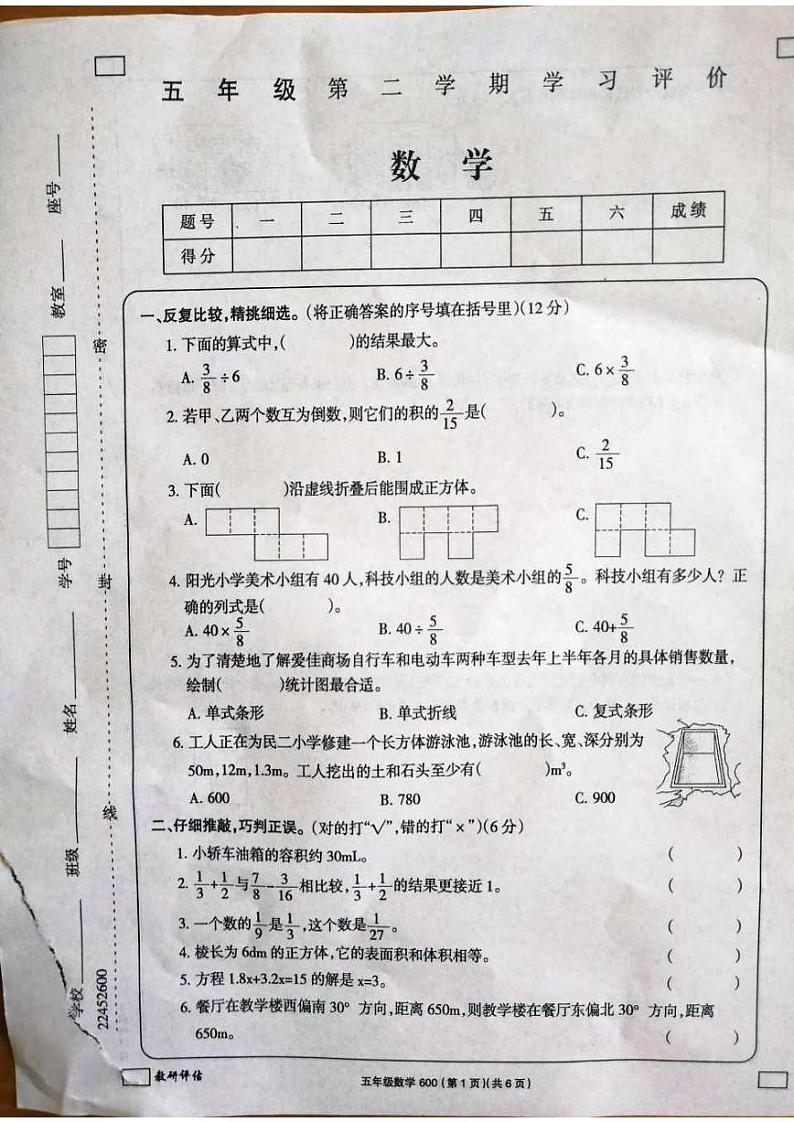 五年级第二学期学习评价
数学
题号 一 二 三 四 五 六 成绩
得分
一、反复比较,精挑细选。(将正确答案的序号填在括号里)(12分)
1. 下面的算式中,( )的结果最大。
A. 3/8÷6 B. 6÷3/8 C. 6×3/8
2. 若甲、乙两个数互为倒数,则它们的积的2/15是( )。
A. 0 B. 1 C. 2/15
3. 下面( )沿虚线折叠后能围成正方体。
A. B. C.
4. 阳光小学美术小组有40人,科技小组的人数是美术小组的5/8。科技小组有多少人?正
确的列式是( )。
A. 40×5/8 B. 40÷5/8 C. 40+5/8
5. 为了清楚地了解爱佳商场自行车和电动车两种车型去年上半年各月的具体销售数量,
绘制( )统计图最合适。
A. 单式条形 B. 单式折线 C. 复式条形
6. 工人正在为民二小学修建一个长方体游泳池,游泳池的长、宽、深分别为
50m,12m,1.3m。工人挖出的土和石头至少有( )m³。
A. 600 B. 780 C. 900
二、仔细推敲,巧判正误。(对的打“√”,错的打“×”)(6分)
1. 小轿车油箱的容积约30mL。 ( )
2. 1/3+1/2与7/8-3/16相比较,1/3+1/2的结果更接近1。 ( )
3. 一个数的1/9是1/3,这个数是1/27。 ( )
4. 棱长为6dm的正方体,它的表面积和体积相等。 ( )
5. 方程1.8x+3.2x=15的解是x=3。 ( )
6. 餐厅在教学楼西偏南30°方向,距离650m,则教学楼在餐厅东偏北30°方向,距离
650m。 ( )
教研评估
五年级数学 600 (第1页)(共6页)
学校 班级 姓名 学号 教室 座号
22452600
密 封 线